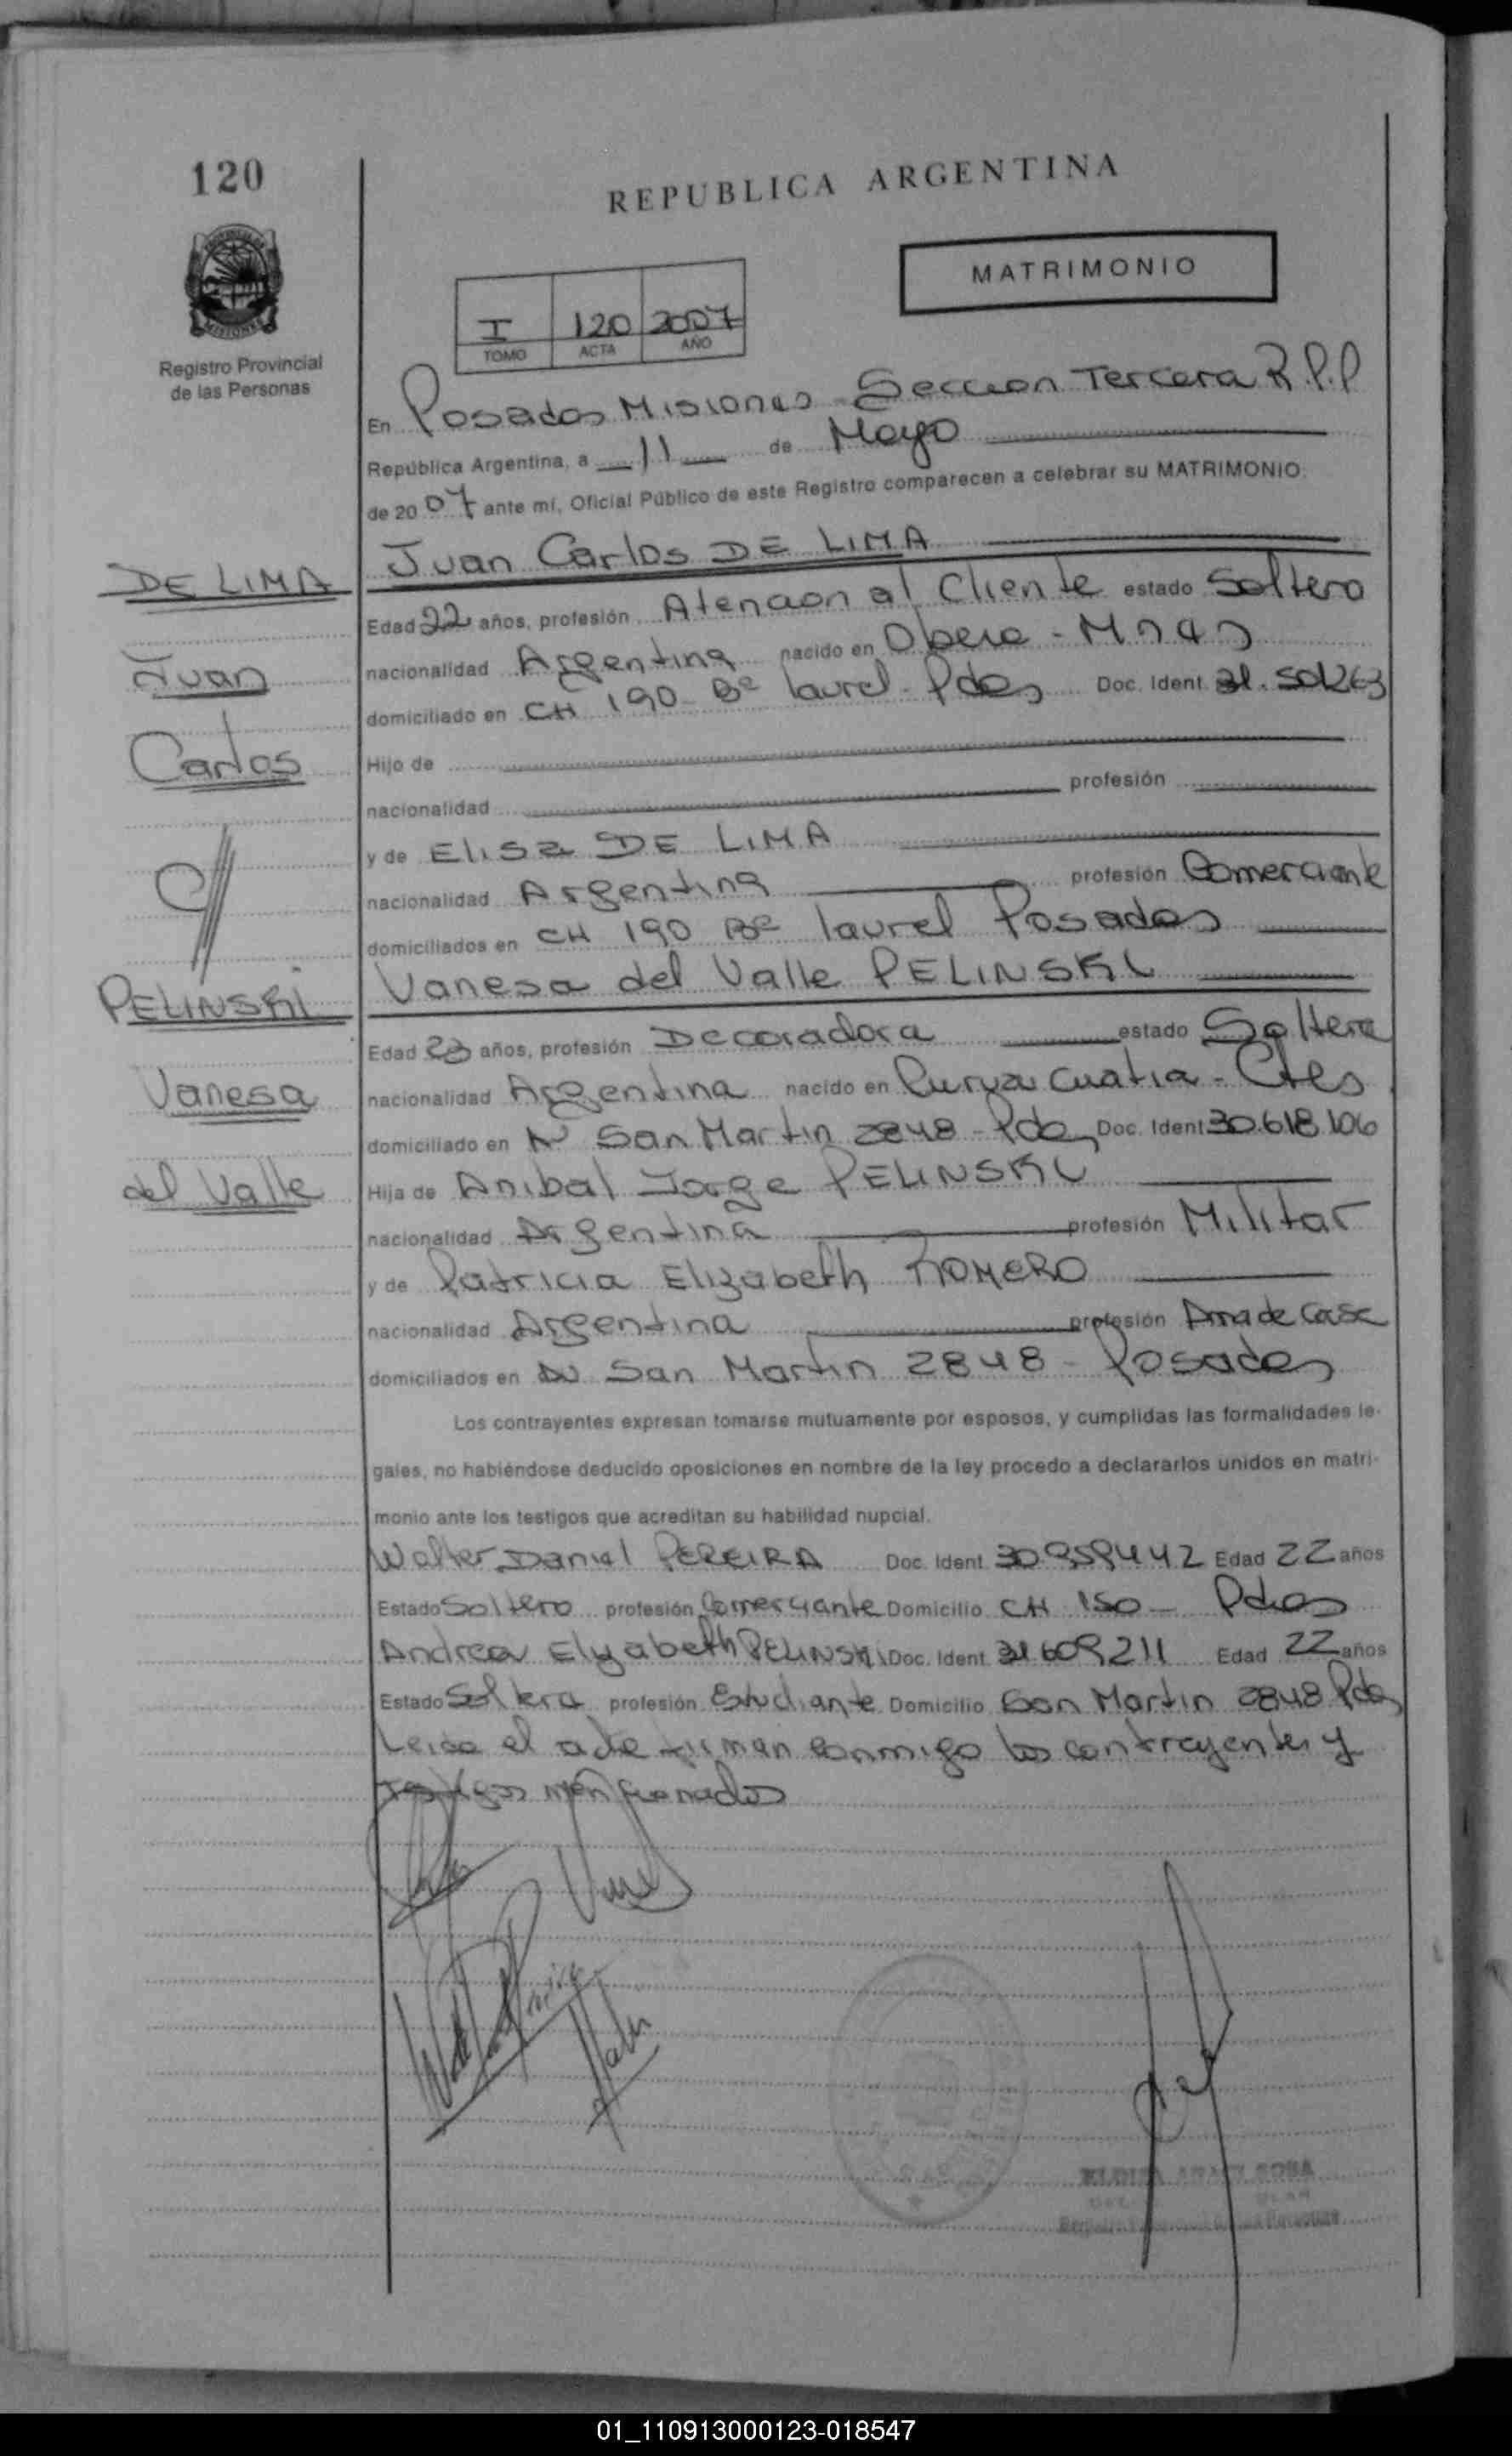 120
REPUBLICA ARGENTINA
MATRIMONIO
I 120 2007
TOMO ACTA AÑO
Registro Provincial
de las Personas
En Posadas Misiones - Seccion Tercera R.P.P
República Argentina, a 11 de Mayo
de 20 07 ante mí, Oficial Público de este Registro comparecen a celebrar su MATRIMONIO:
Juan Carlos DE LIMA
DE LIMA
Edad 22 años, profesión Atencion al Cliente estado Soltero
Juan
nacionalidad Argentina nacido en Obera - Mnes
domiciliado en CH 190 - Bº Laurel - Pdas Doc. Ident.
Carlos
Hijo de
nacionalidad profesión
y de Elisa DE LIMA
y
nacionalidad Argentina profesión Comerciante
domiciliados en CH 190 Bº Laurel Posadas
Vanesa del Valle PELINSKI
PELINSKI
Edad 23 años, profesión Decoradora estado Soltera
Vanesa
nacionalidad Argentina nacido en Curuzu Cuatia - Ctes
domiciliado en Av San Martin 2848 - Pdas Doc. Ident. 30.618.106
del Valle
Hija de Anibal Jorge PELINSKI
nacionalidad Argentina profesión Militar
y de Patricia Elizabeth ROMERO
nacionalidad Argentina profesión Ama de Casa
domiciliados en Av San Martin 2848 - Posadas
Los contrayentes expresan tomarse mutuamente por esposos, y cumplidas las formalidades le-
gales, no habiéndose deducido oposiciones en nombre de la ley procedo a declararlos unidos en matri-
monio ante los testigos que acreditan su habilidad nupcial.
Walter Daniel PEREIRA Doc. Ident. 30.959442 Edad 22 años
Estado Soltero profesión Comerciante Domicilio CH 150 - Pdas
Andrea Elizabeth PELINSKI Doc. Ident. 31609211 Edad 22 años
Estado Soltera profesión Estudiante Domicilio San Martin 2848 Pdas
Leida el acta firman conmigo los contrayentes y
testigos mencionados
SOSA
01_110913000123-018547